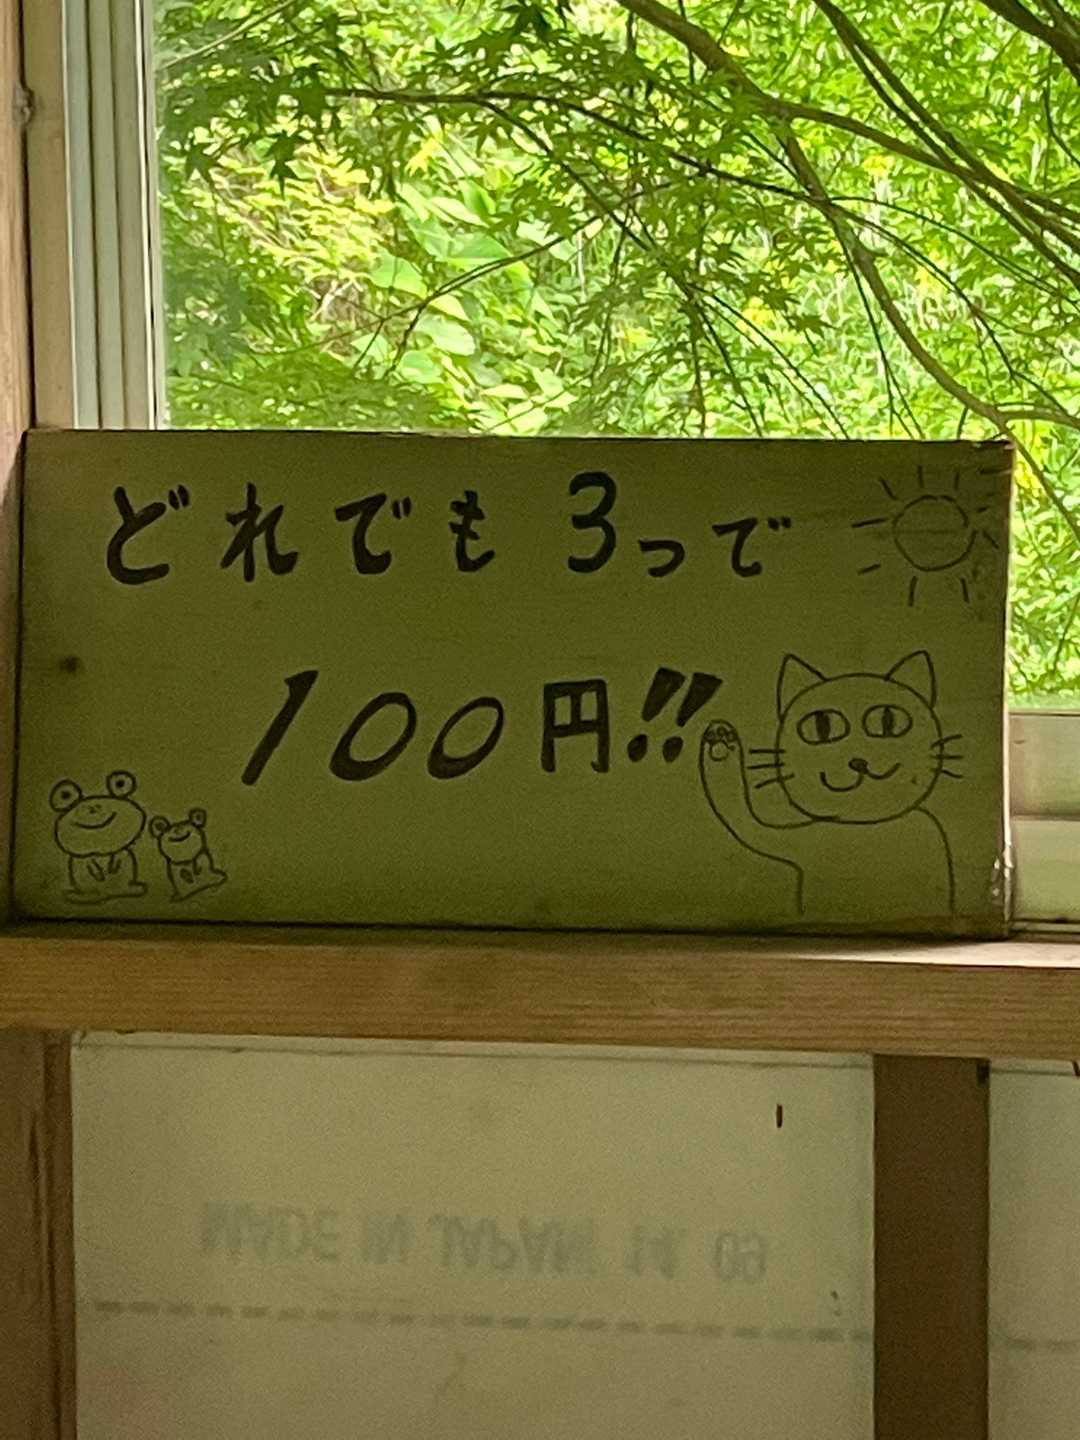 どれでも 3つで
100円!!
MADE IN JAPAN 14 09